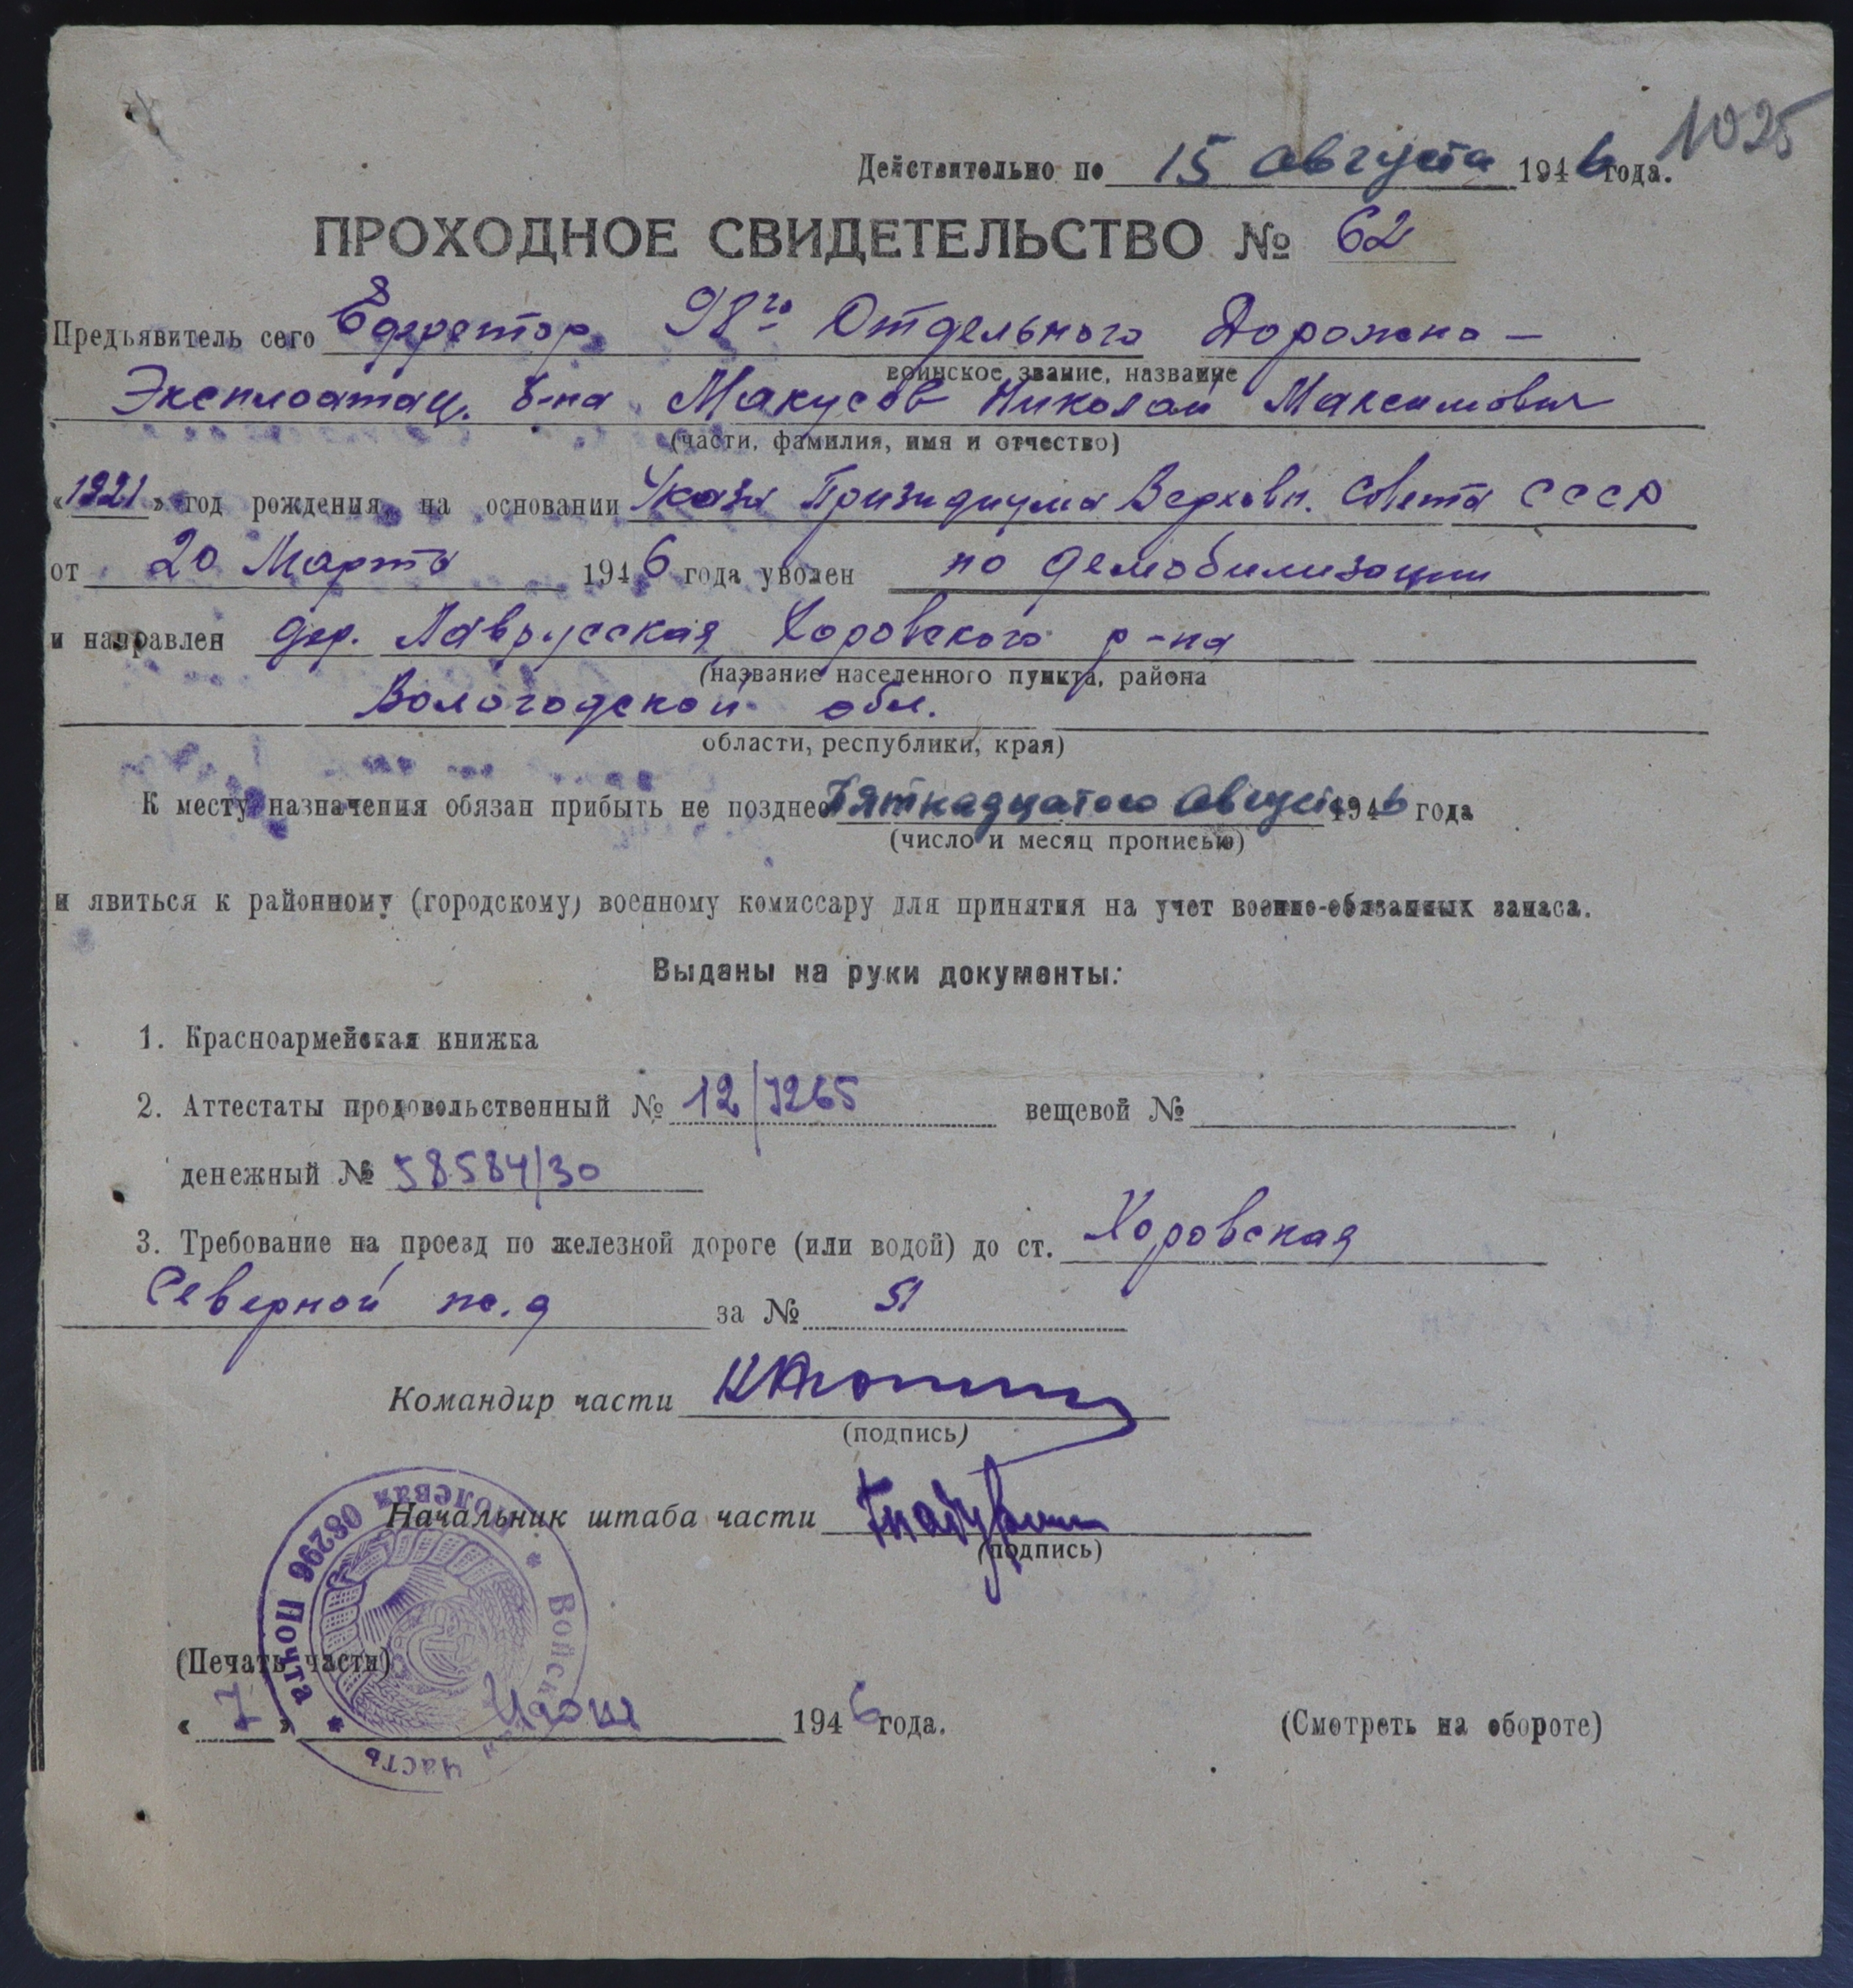 1025
Действительно по 15 августа 1946 года.
ПРОХОДНОЕ СВИДЕТЕЛЬСТВО № 62
Предъявитель сего Ефрейтор 98го Отдельного Дорожно-
воинское звание, название
Эксплоатац. б-на Макусов Николай Максимович
(части, фамилия, имя и отчество)
«1921» год рождения, на основании Указа Призидиума Верховн. Совета СССР
от 20 Марта 1946 года уволен по демобилизации
и направлен дер. Лаврусская Харовского р-на
(название населенного пункта, района
Вологодской обл.
области, республики, края)
К месту назначения обязан прибыть не позднее Пятнадцатого Августа 1946 года
(число и месяц прописью)
и явиться к районному (городскому) военному комиссару для принятия на учет военно-обязанных запаса.
Выданы на руки документы:
1. Красноармейская книжка
2. Аттестаты продовольственный № 12/7265 вещевой №
денежный № 58584/30
3. Требование на проезд по железной дороге (или водой) до ст. Харовская
Северной ж.д за № 51
Командир части
(подпись)
Начальник штаба части
(подпись)
Войсковая часть Полевая Почта 08296
(Печать части)
«7» Июня 1946 года.
(Смотреть на обороте)